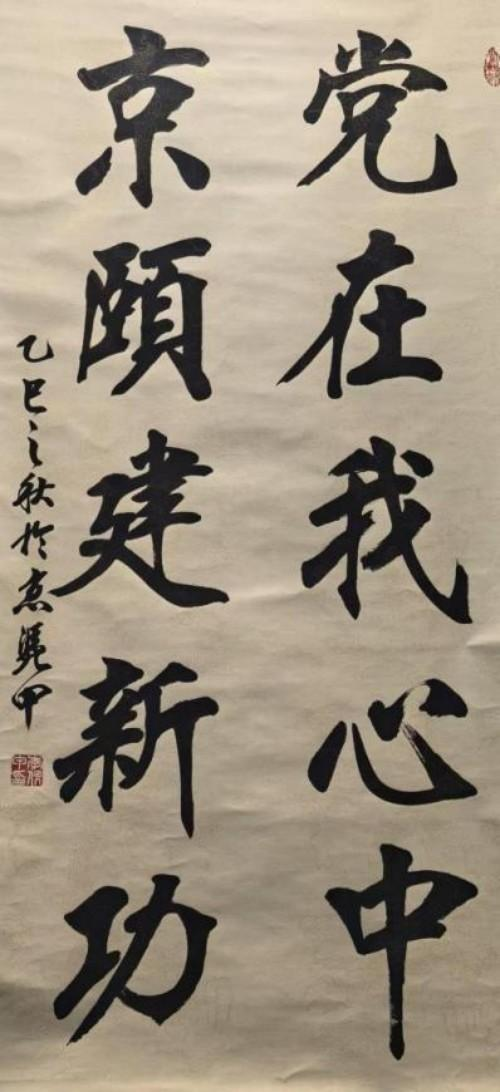 党在我心中
京颐建新功
乙巳之秋於京